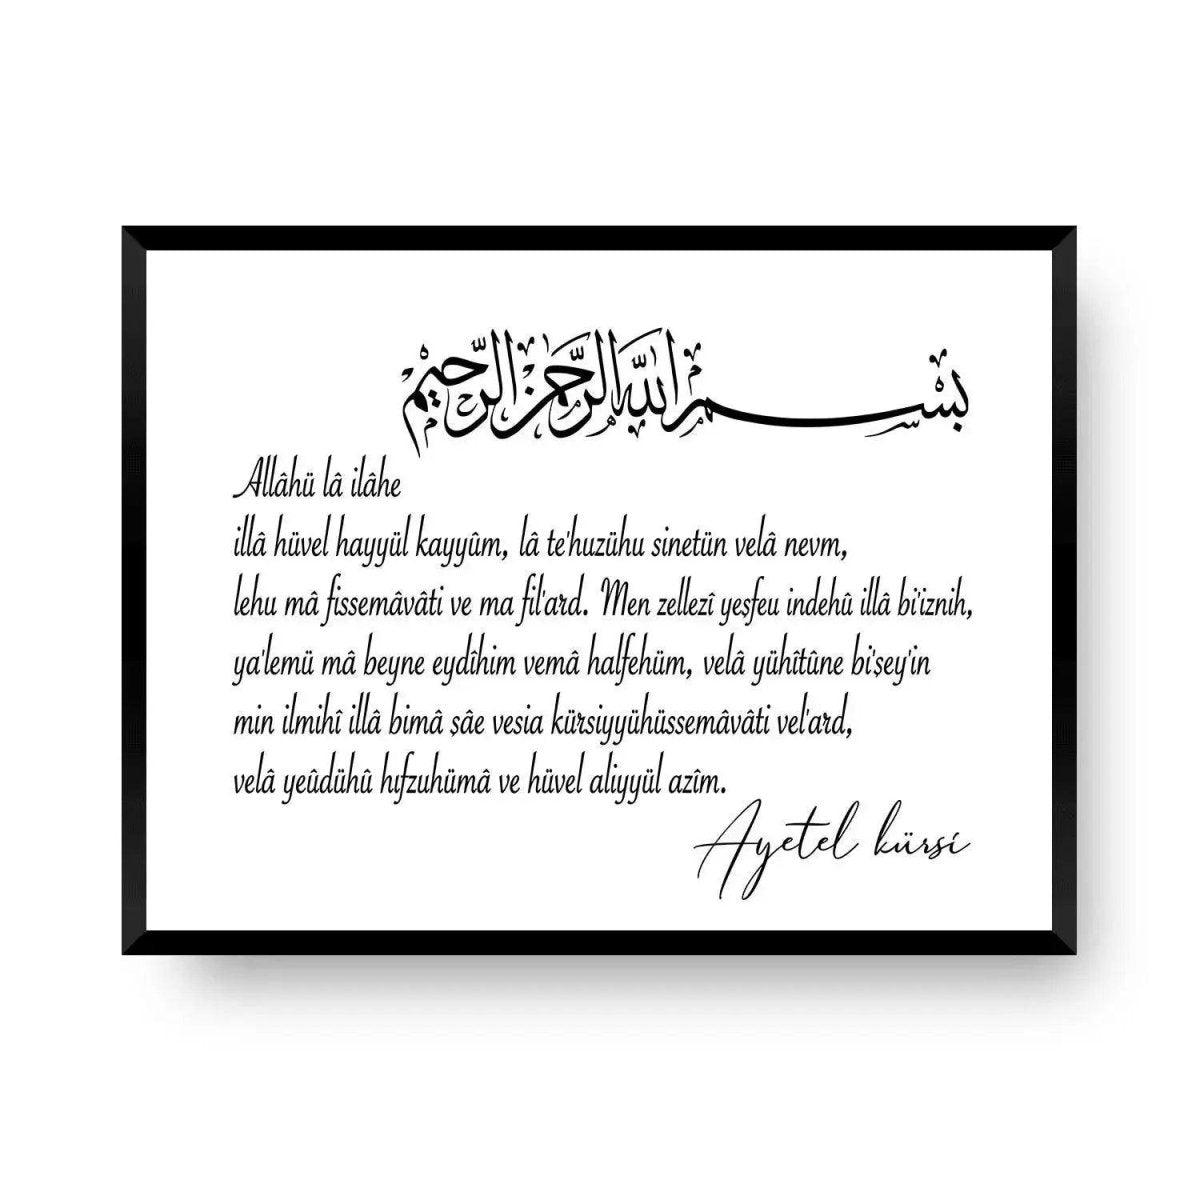 بسم الله الرحمن الرحيم
Allâhü lâ ilâhe
illâ hüvel hayyül kayyûm, lâ te'huzühu sinetün velâ nevm,
lehu mâ fissemâvâti ve ma fil'ard. Men zellezî yeşfeu indehû illâ bi'iznih,
ya'lemü mâ beyne eydîhim vemâ halfehüm, velâ yühîtûne bi'şey'in
min ilmihî illâ bimâ şâe vesia kürsiyyühüssemâvâti vel'ard,
velâ yeûdühû hıfzuhümâ ve hüvel aliyyül azîm.
Ayetel kürsi